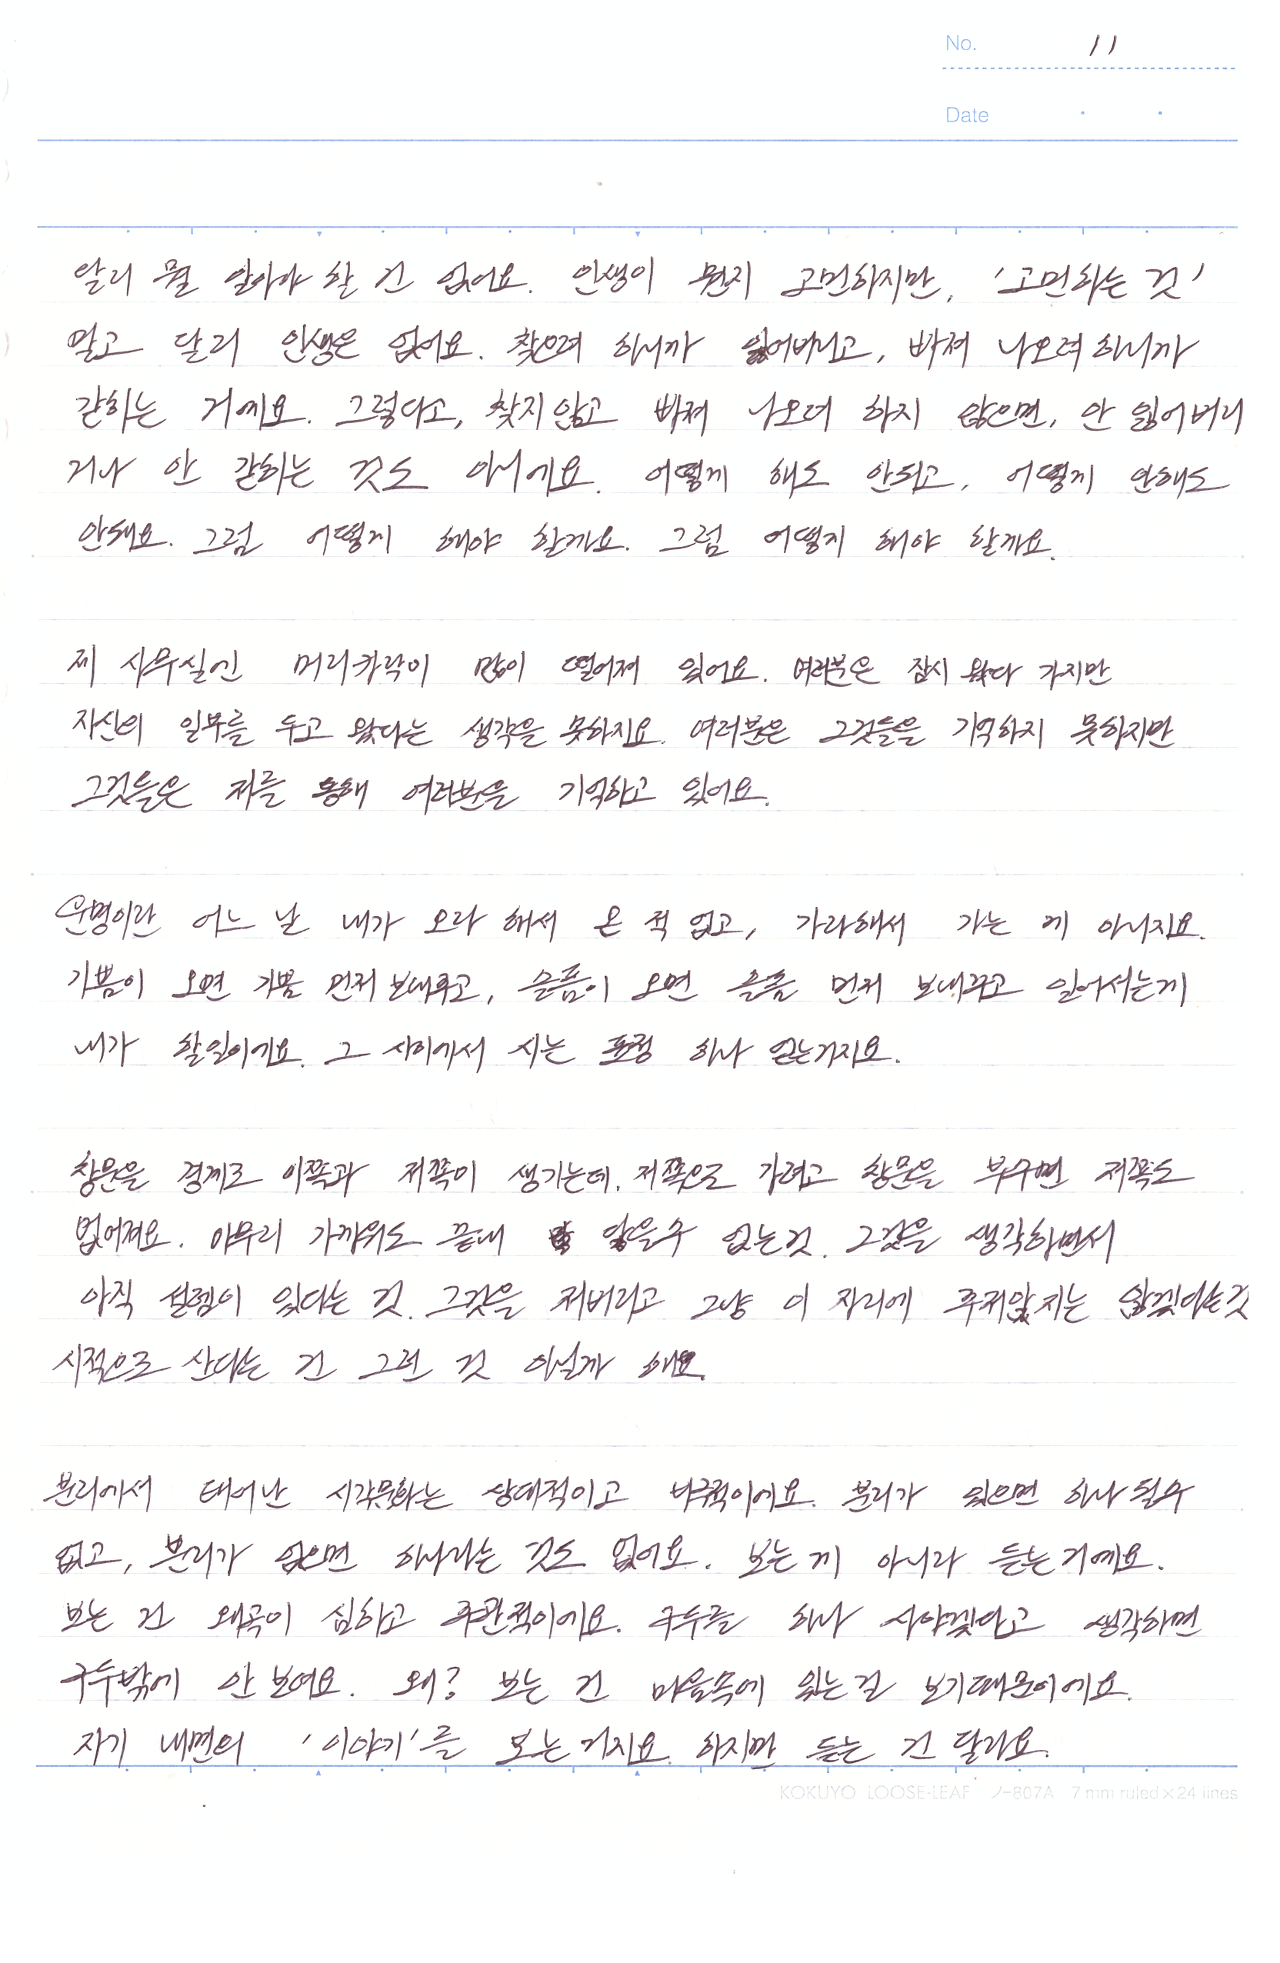 No. 11
Date
달리 뭘 알아야 할 건 없어요. 인생이 뭔지 고민하지만, '고민하는 것'
말고 달리 인생은 없어요. 찾으려 하니까 잃어버리고, 빠져 나오려 하니까
갇히는 거예요. 그렇다고, 찾지 않고 빠져 나오려 하지 않으면, 안 잃어버리
거나 안 갇히는 것도 아니에요. 어떻게 해도 안되고, 어떻게 안해도
안돼요. 그럼 어떻게 해야 할까요. 그럼 어떻게 해야 할까요.
제 사무실엔 머리카락이 많이 떨어져 있어요. 여러분은 잠시 왔다 가지만
자신의 일부를 두고 왔다는 생각을 못하지요. 여러분은 그것들을 기억하지 못하지만
그것들은 저를 통해 여러분을 기억하고 있어요.
운명이란 어느 날 내가 오라 해서 온 적 없고, 가라해서 가는 게 아니지요.
기쁨이 오면 기쁨 먼저 보내주고, 슬픔이 오면 슬픔 먼저 보내주고 일어서는게
내가 할일이에요. 그 사이에서 시는 표정 하나 얻는거지요.
창문을 경계로 이쪽과 저쪽이 생기는데. 저쪽으로 가려고 창문을 부수면 저쪽도
없어져요. 아무리 가까워도 끝내 닿을수 없는것. 그것을 생각하면서
아직 설렘이 있다는 것. 그것을 저버리고 그냥 이 자리에 주저앉지는 않겠다는것
시적으로 산다는 건 그런 것 아닐까 해요.
분리에서 태어난 시각문화는 상대적이고 비극적이에요. 분리가 있으면 하나 될수
없고, 분리가 없으면 하나라는 것도 없어요. 보는 게 아니라 듣는거예요.
보는 건 왜곡이 심하고 주관적이에요. 구두를 하나 사야겠다고 생각하면
구두밖에 안 보여요. 왜? 보는 건 마음속에 있는걸 보기때문이에요.
자기 내면의 '이야기'를 보는거지요. 하지만 듣는 건 달라요.
KOKUYO LOOSE-LEAF ノ-807A 7 mm ruled×24 lines